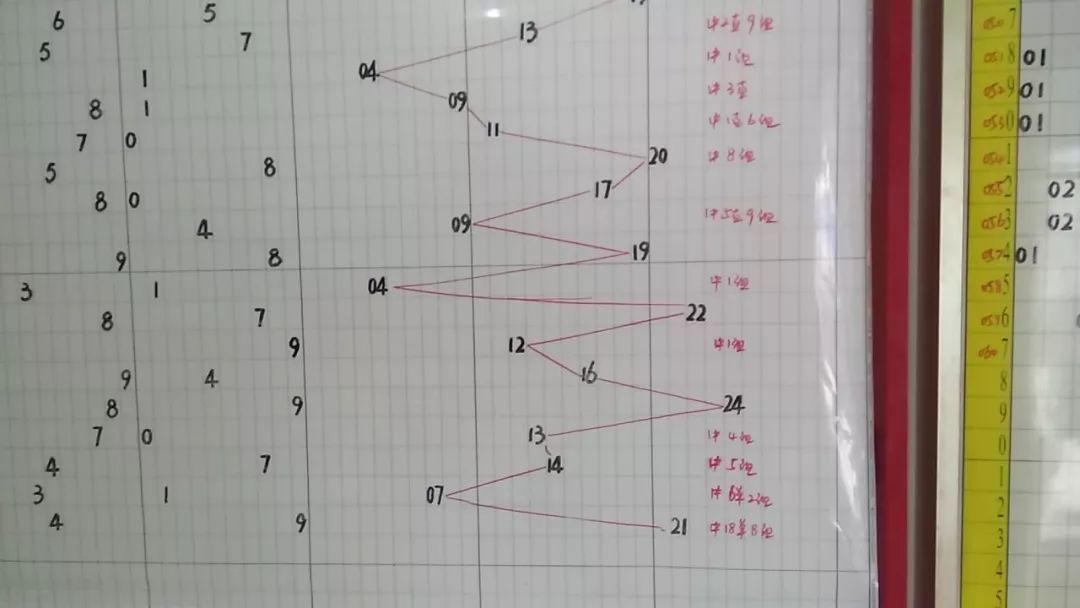 6 5 13 中2直9组 7
5 7 04 中1组 8 01
1 09 中3直 9 01
8 1 11 中1直6组 0 01
7 0 20 中8组 1
5 8 17 2 02
8 0 09 中5直9组 3 02
4 19 4 01
9 8 04 中1组 5
3 1 22 6
8 7 12 中1组 7
9 16 8
9 4 24 9
8 9 13 中4组 0
7 0 14 中5组 1
4 7 07 中6单2组 2
3 1 21 中18单8组 3
4 9 4
5